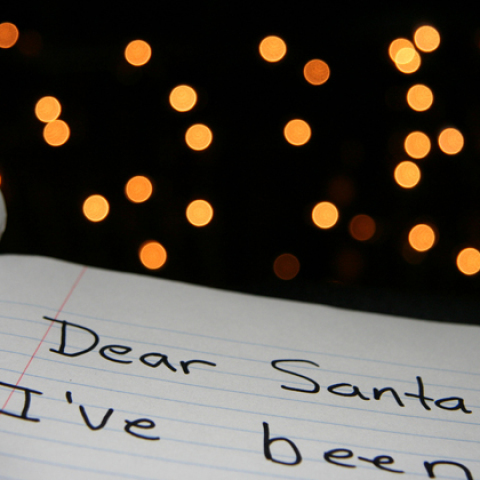 Dear Santa
I've been